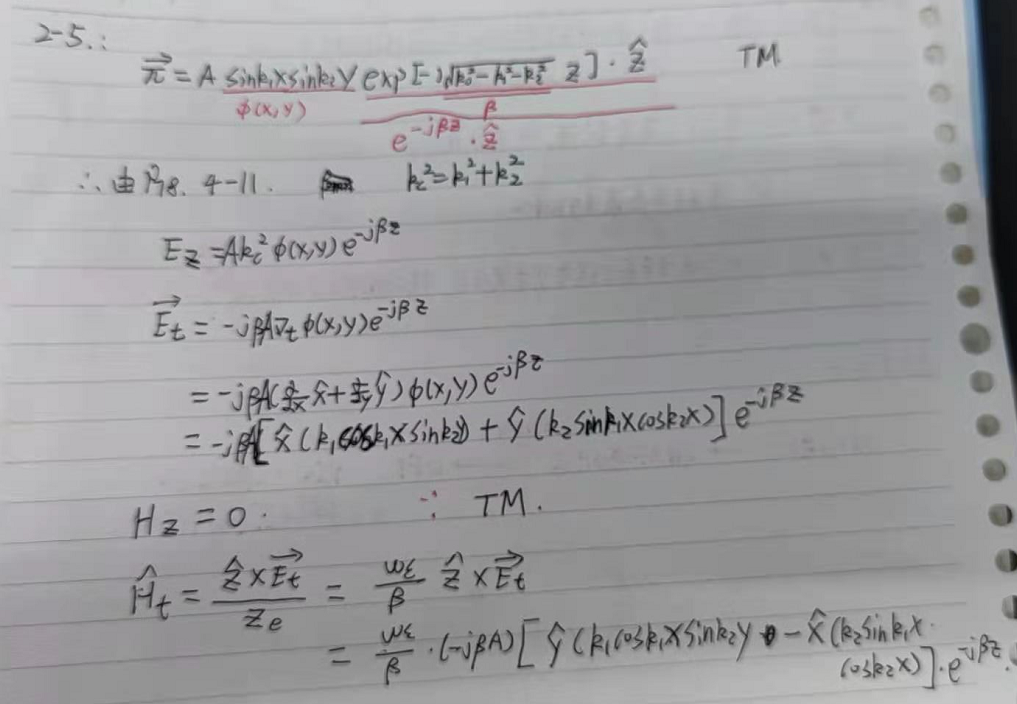 2-5.:
π⃗ = A sink₁x sink₂y exp[-j√(k₀²-k₁²-k₂²) z]·ẑ TM
ϕ(x,y) β
e^{-jβz}·ẑ
∴ 由 P₉₈. 4-11. k_c²=k₁²+k₂²
E_z = Ak_c²ϕ(x,y)e^{-jβz}
E⃗_t = -jβA∇_tϕ(x,y)e^{-jβz}
= -jβA(∂/∂x x̂ + ∂/∂y ŷ)ϕ(x,y)e^{-jβz}
= -jβA[x̂(k₁cosk₁x sink₂y) + ŷ(k₂sink₁x cosk₂x)]e^{-jβz}
H_z = 0. ∵ TM.
Ĥ_t = (ẑ×E⃗_t)/Z_e = (ωε/β) ẑ×E⃗_t
= (ωε/β)·(-jβA)[ŷ(k₁cosk₁x sink₂y - x̂(k₂sink₁x·
cosk₂x)]·e^{-jβz}.